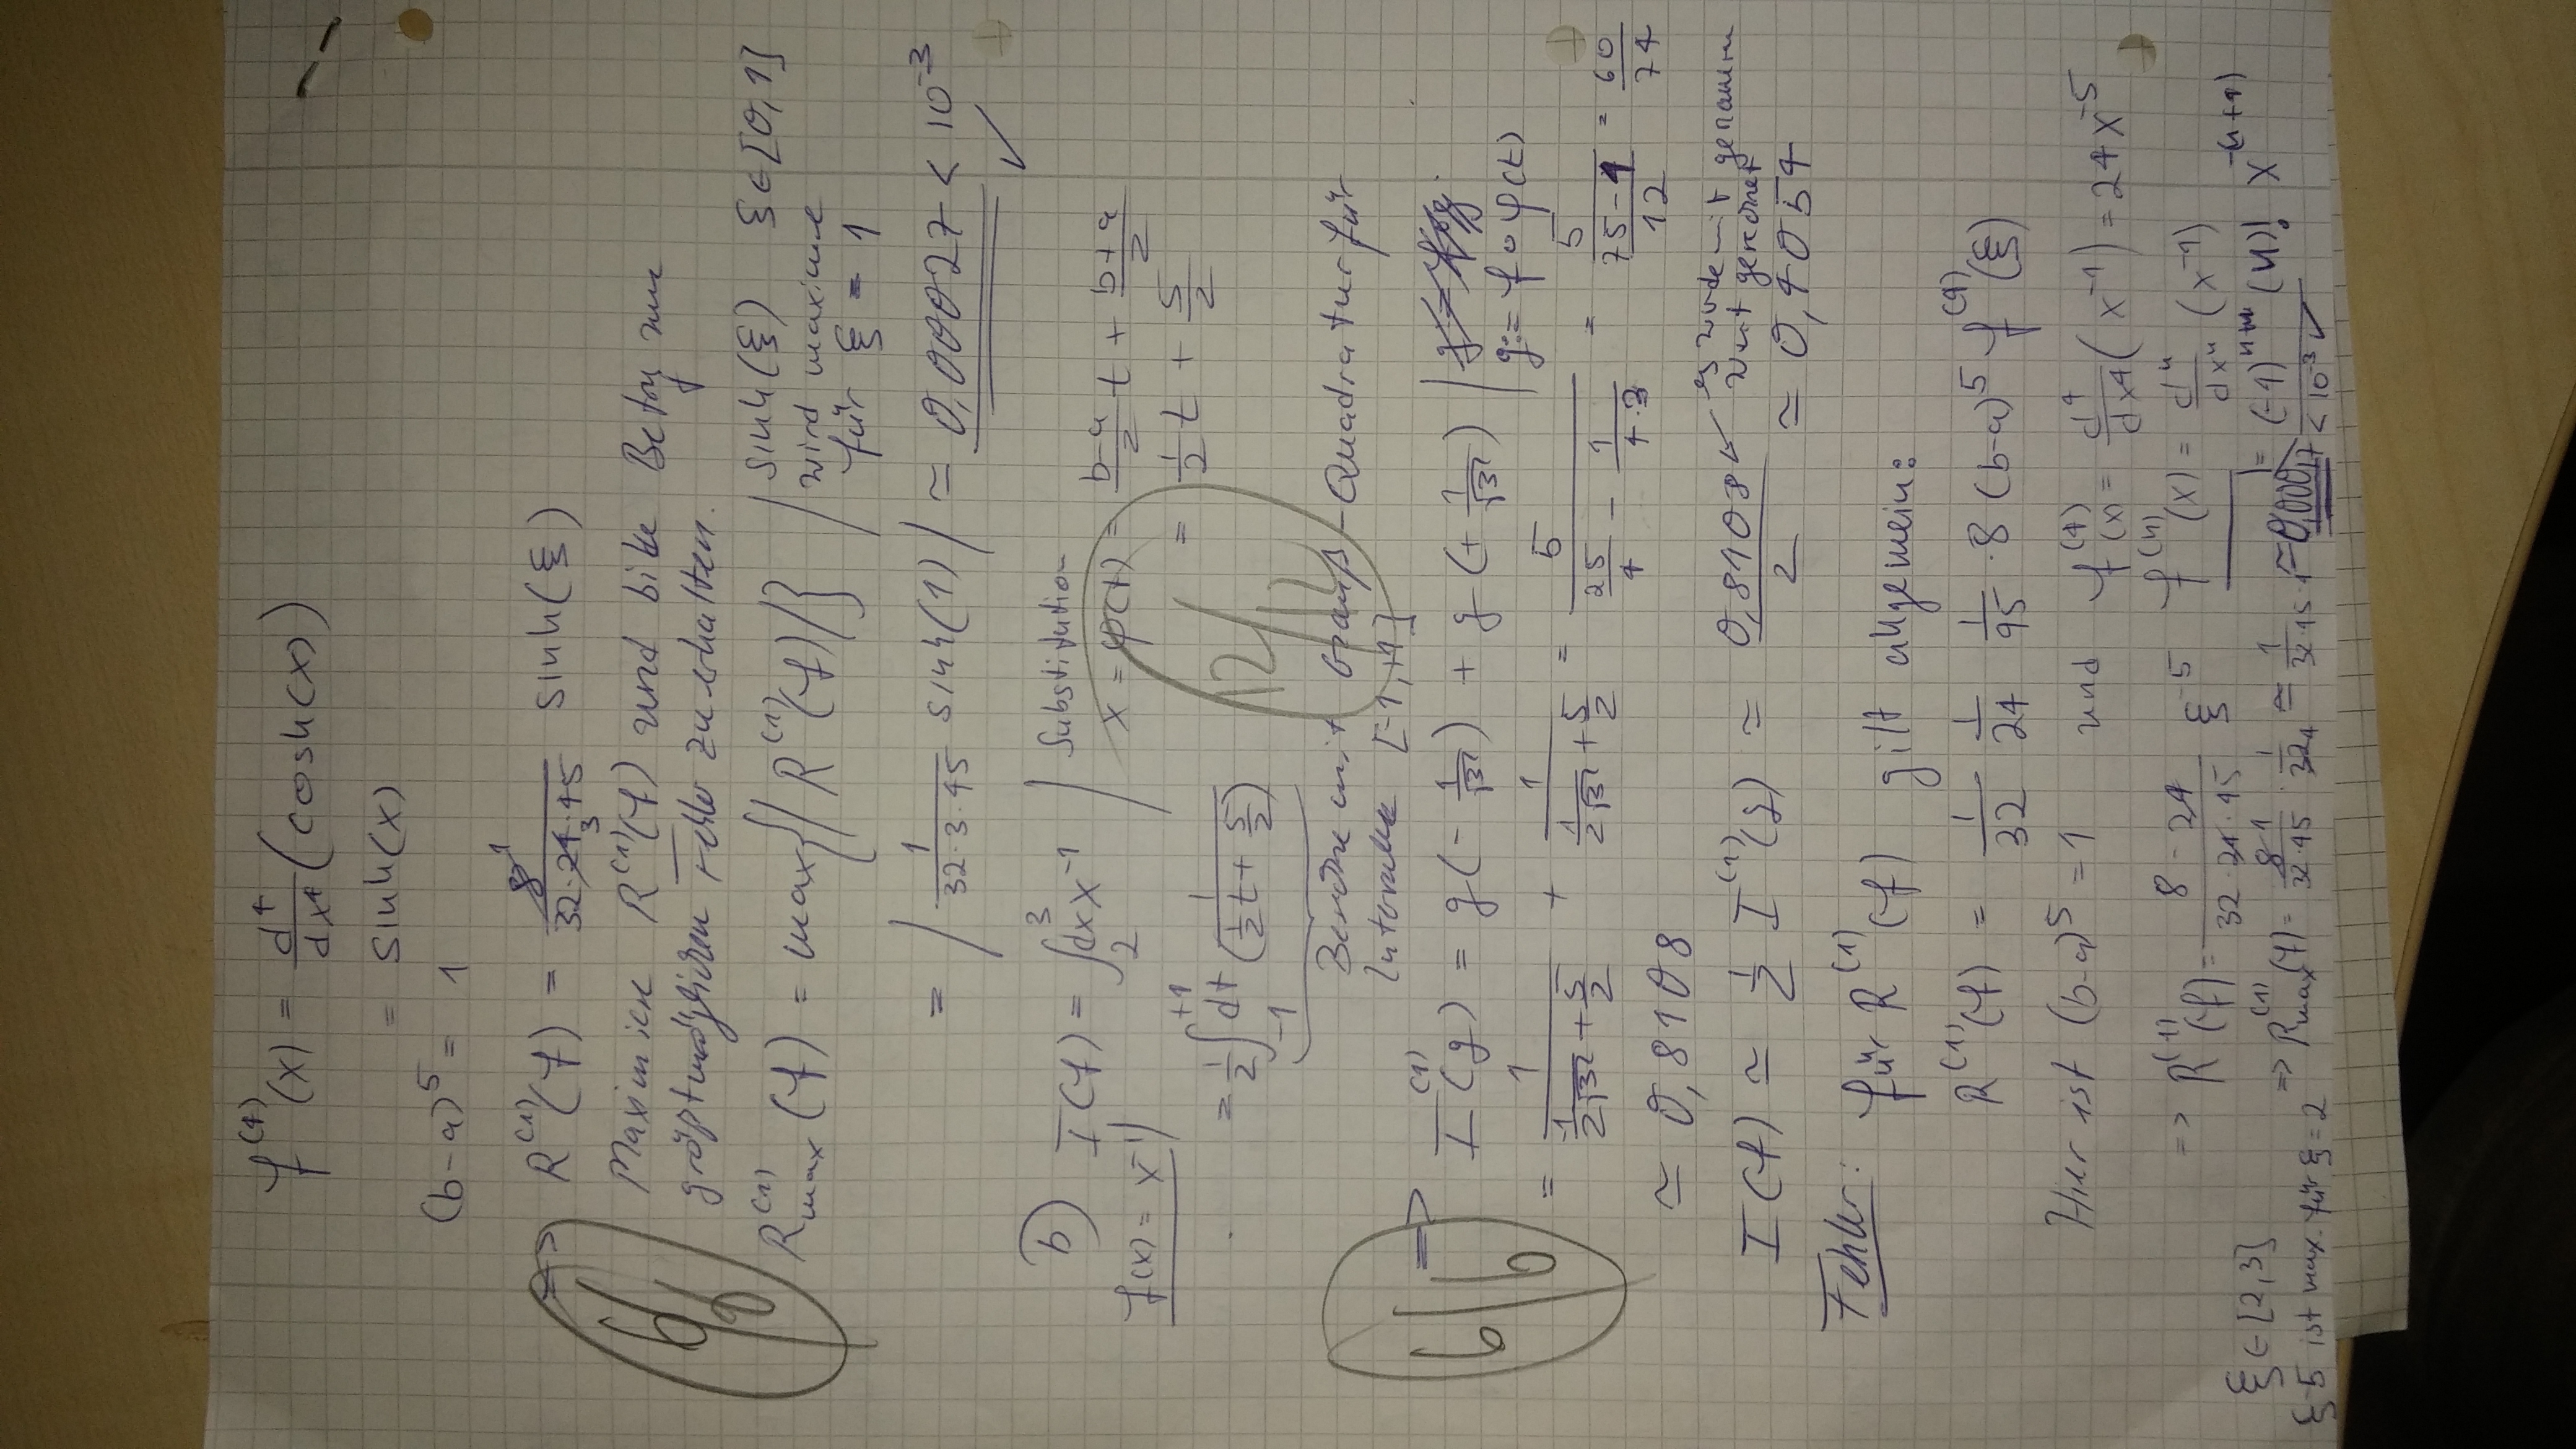 f^(4)(x) = d^4/dx^4 (cosh(x))
= sinh(x)
(b-a)^5 = 1
=> R^(1)(f) = 8 1/32·24 3·45 sinh(ξ)
6/6
Maximiere R^(1)(f) und bilde Betrag um
größtmöglichen Fehler zu erhalten.
R^(1)_max(f) = max{|R^(1)(f)|} | sinh(ξ) ξ∈[0,1]
wird maximal
für ξ = 1
= |1/(32·3·45) sinh(1)| ≃ 0,00027 < 10^-3 ✓
b) I(f) = ∫_2^3 dx x^-1 | Substitution
f(x) = x^-1 | x = φ(t) = (b-a)/2 t + (b+a)/2
= 1/2 t + 5/2
= 1/2 ∫_-1^+1 dt 1/(1/2 t + 5/2)
12/12
Berechne mit Gauß-Quadratur für
Intervalle [-1,+1]
6/6
=> I^(1)(g) = g(-1/√3) + g(+1/√3) | g := f∘φ(t)
= 1/(-1/(2√3) + 5/2) + 1/(1/(2√3) + 5/2) = 5/(25/4 - 1/(4·3)) = 5/((75-1)/12) = 60/74
≃ 0,8108
I(f) ≃ 1/2 I^(1)(g) ≃ 0,8108/2 ↙ es wurde mit genauerem
Wert gerechnet
≃ 0,4054
Fehler: für R^(1)(f) gilt allgemein:
R^(1)(f) = 1/32 1/24 1/45 ·8 (b-a)^5 f^(4)(ξ)
Hier ist (b-a)^5 = 1 und f^(4)(x) = d^4/dx^4 (x^-1) = 24 x^-5
=> R^(1)(f) = 8·24/(32·24·45) ξ^-5 f^(n)(x) = d^n/dx^n (x^-1)
= (-1)^n+1 (n)! x^-(n+1)
ξ∈[2,3]
ξ^-5 ist max. für ξ=2
=> R^(1)_max(f) = 8·1/(32·45) · 1/32 4 ≃ 1/(32·45·4) ≃ 0,00017 < 10^-3 ✓